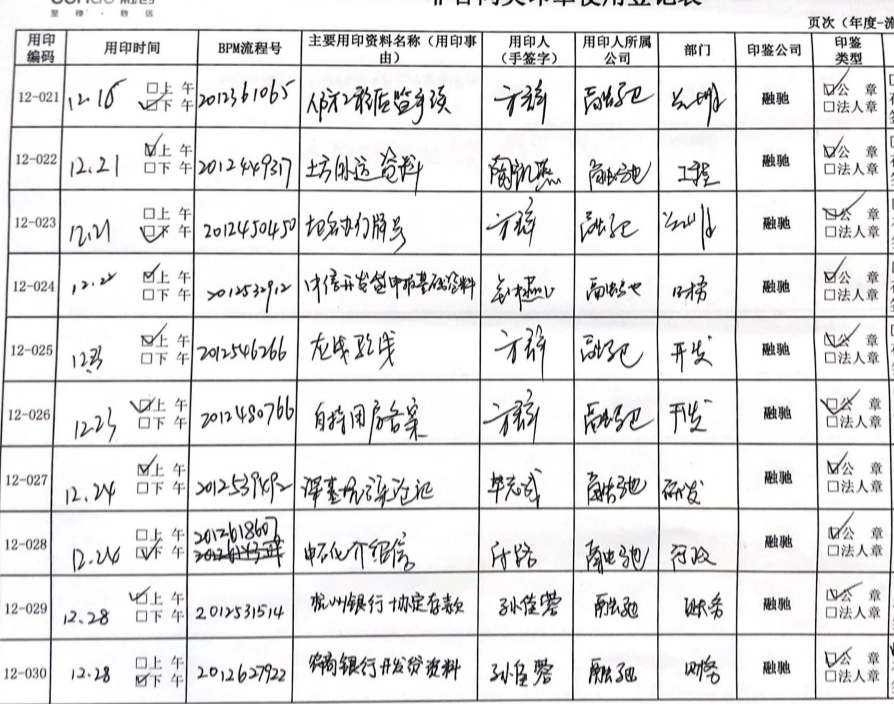 至臻·致远
页次（年度-流
用印编码 用印时间 BPM流程号 主要用印资料名称（用印事由） 用印人（手签字） 用印人所属公司 部门 印鉴公司 印鉴类型
12-021 12.18 上午 下午 2012361065 融驰 公章 法人章
12-022 12.21 上午 下午 2012449317 土方外运资料 融驰 工程 融驰 公章 法人章
12-023 12.21 上午 下午 2012450450 地名办门牌号 融驰 融驰 公章 法人章
12-024 12.22 上午 下午 2012532912 中信开发贷申报基础资料 融驰 财务 融驰 公章 法人章
12-025 12.23 上午 下午 2012546266 灰线验线 融驰 开发 融驰 公章 法人章
12-026 12.23 上午 下午 2012480766 自持用房备案 融驰 开发 融驰 公章 法人章
12-027 12.24 上午 下午 2012539492 融驰 研发 融驰 公章 法人章
12-028 12.24 上午 下午 2012618607 中石化介绍信 融驰 行政 融驰 公章 法人章
12-029 12.28 上午 下午 2012531514 杭州银行协定存款 孙佳蓉 融驰 财务 融驰 公章 法人章
12-030 12.28 上午 下午 2012627922 农商银行开发贷资料 孙佳蓉 融驰 财务 融驰 公章 法人章